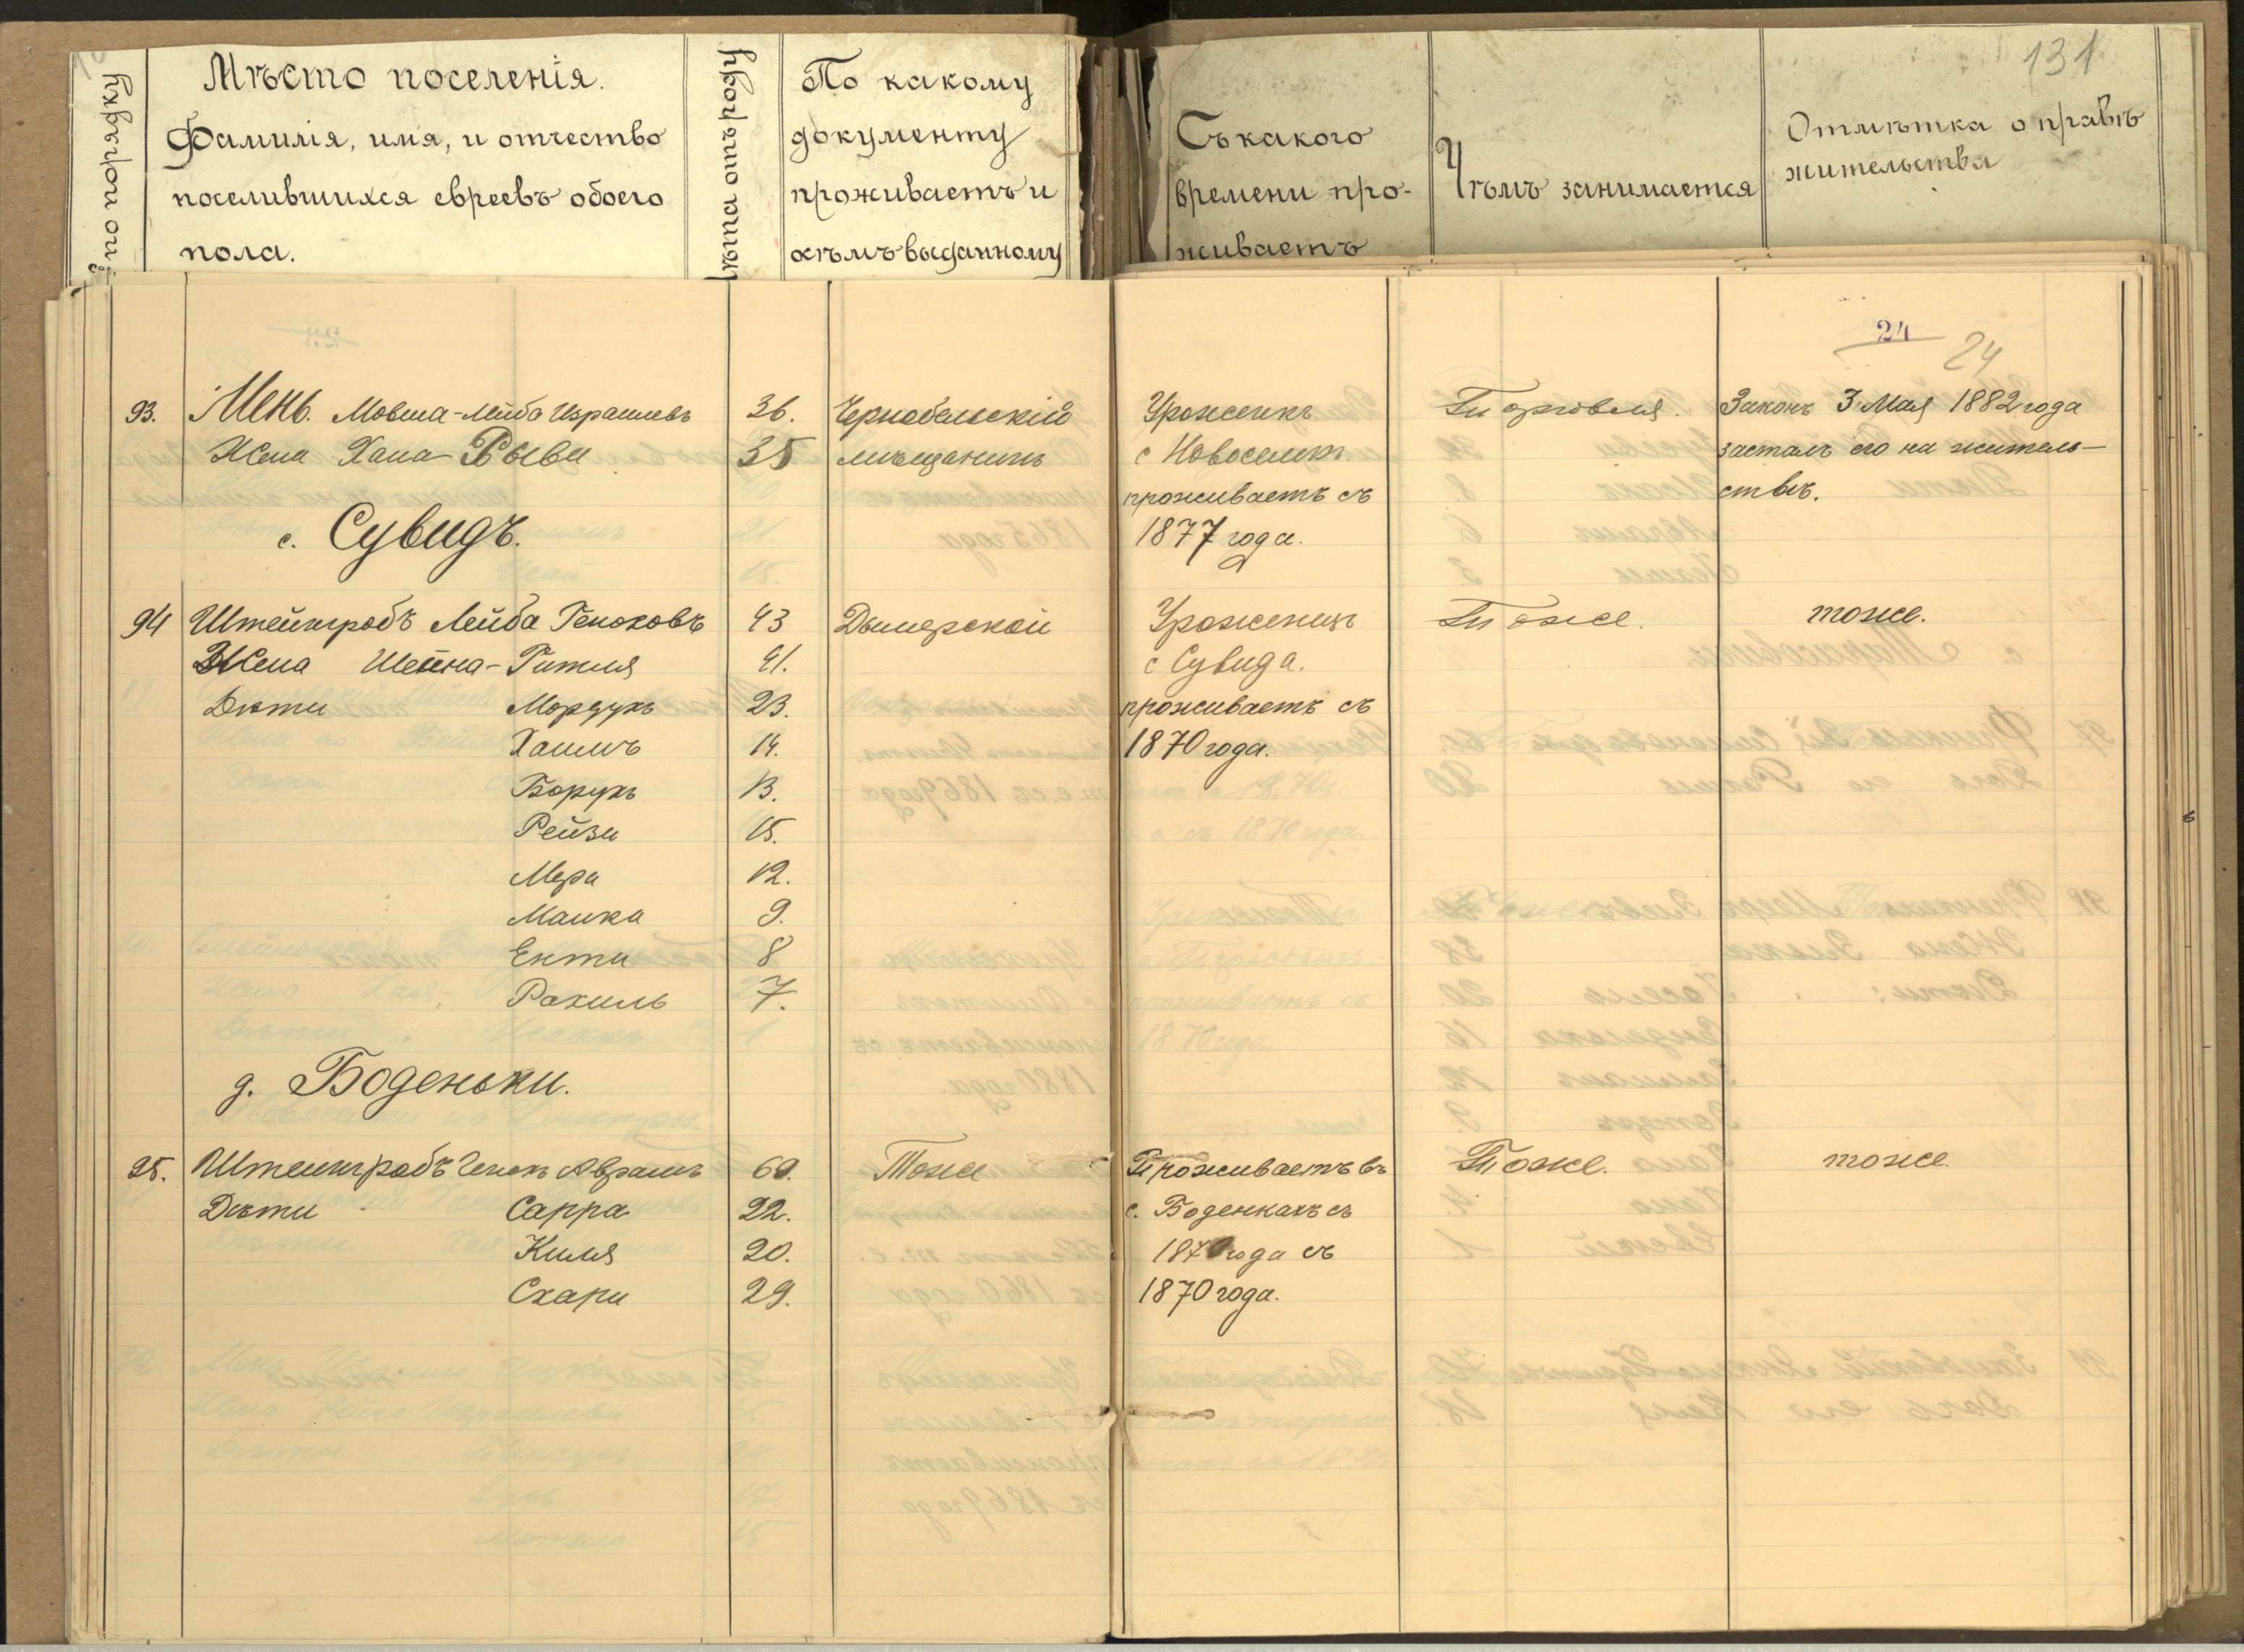 131
№ по порядку
Мѣсто поселенія.
Фамилія, имя, и отчество
поселившихся евреевъ обоего
пола.
Лѣта отъ роду
По какому
документу
проживаетъ и
кѣмъ выданному
Съ какого
времени про-
живаетъ
Чѣмъ занимается
Отмѣтка о правѣ
жительства
24
24
93. Мень. Мовша-Лейба Израилевъ 36. Чернобельскій Уроженецъ Торговля. Законъ 3 Мая 1882 года
Жена Хана-Рыва 35 мѣщанинъ с Новоселки засталъ его на житель-
проживаетъ съ ствѣ.
с. Сувидъ. 1877 года.
94 Штейнгробъ Лейба Геноховъ 43 Дымерской Уроженецъ Тоже. тоже.
Жена Шейна-Гитля 41. с Сувида.
Дѣти Мордухъ 23. проживаетъ съ
Хаимъ 14. 1870 года.
Борухъ 13.
Рейзи 15.
Мера 12.
Манка 9.
Ента 8
Рахиль 7.
д. Боденьки.
95. Штейнгробъ Генохъ Аврамъ 60. Тоже Проживаетъ въ Тоже. тоже.
Дѣти Сарра 22. с. Боденкахъ съ
Киля 20. 1870 года съ
Схари 29. 1870 года.